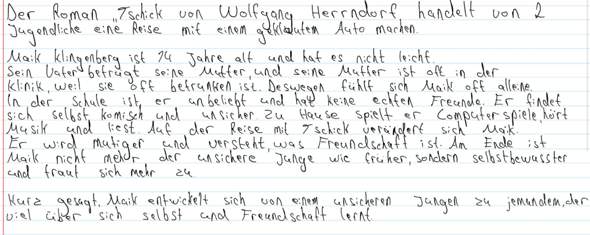 Der Roman „Tschick von Wolfgang Herrndorf handelt von 2
Jugendliche eine Reise mit einem geklautem Auto machen.
Maik Klingenberg ist 14 Jahre alt und hat es nicht leicht.
Sein Vater betrügt seine Mutter, und seine Mutter ist oft in der
Klinik, weil sie oft betrunken ist. Deswegen fühlt sich Maik oft alleine.
In der Schule ist er unbeliebt und hat keine echten Freunde. Er findet
sich selbst komisch und unsicher. Zu Hause spielt er Computerspiele, hört
Musik und liest. Auf der Reise mit Tschick verändert sich Maik.
Er wird mutiger und versteht, was Freundschaft ist. Am Ende ist
Maik nicht mehr der unsichere Junge wie früher, sondern selbstbewusster
und traut sich mehr zu.
Kurz gesagt, Maik entwickelt sich von einem unsicheren Jungen zu jemandem, der
viel über sich selbst und Freundschaft lernt